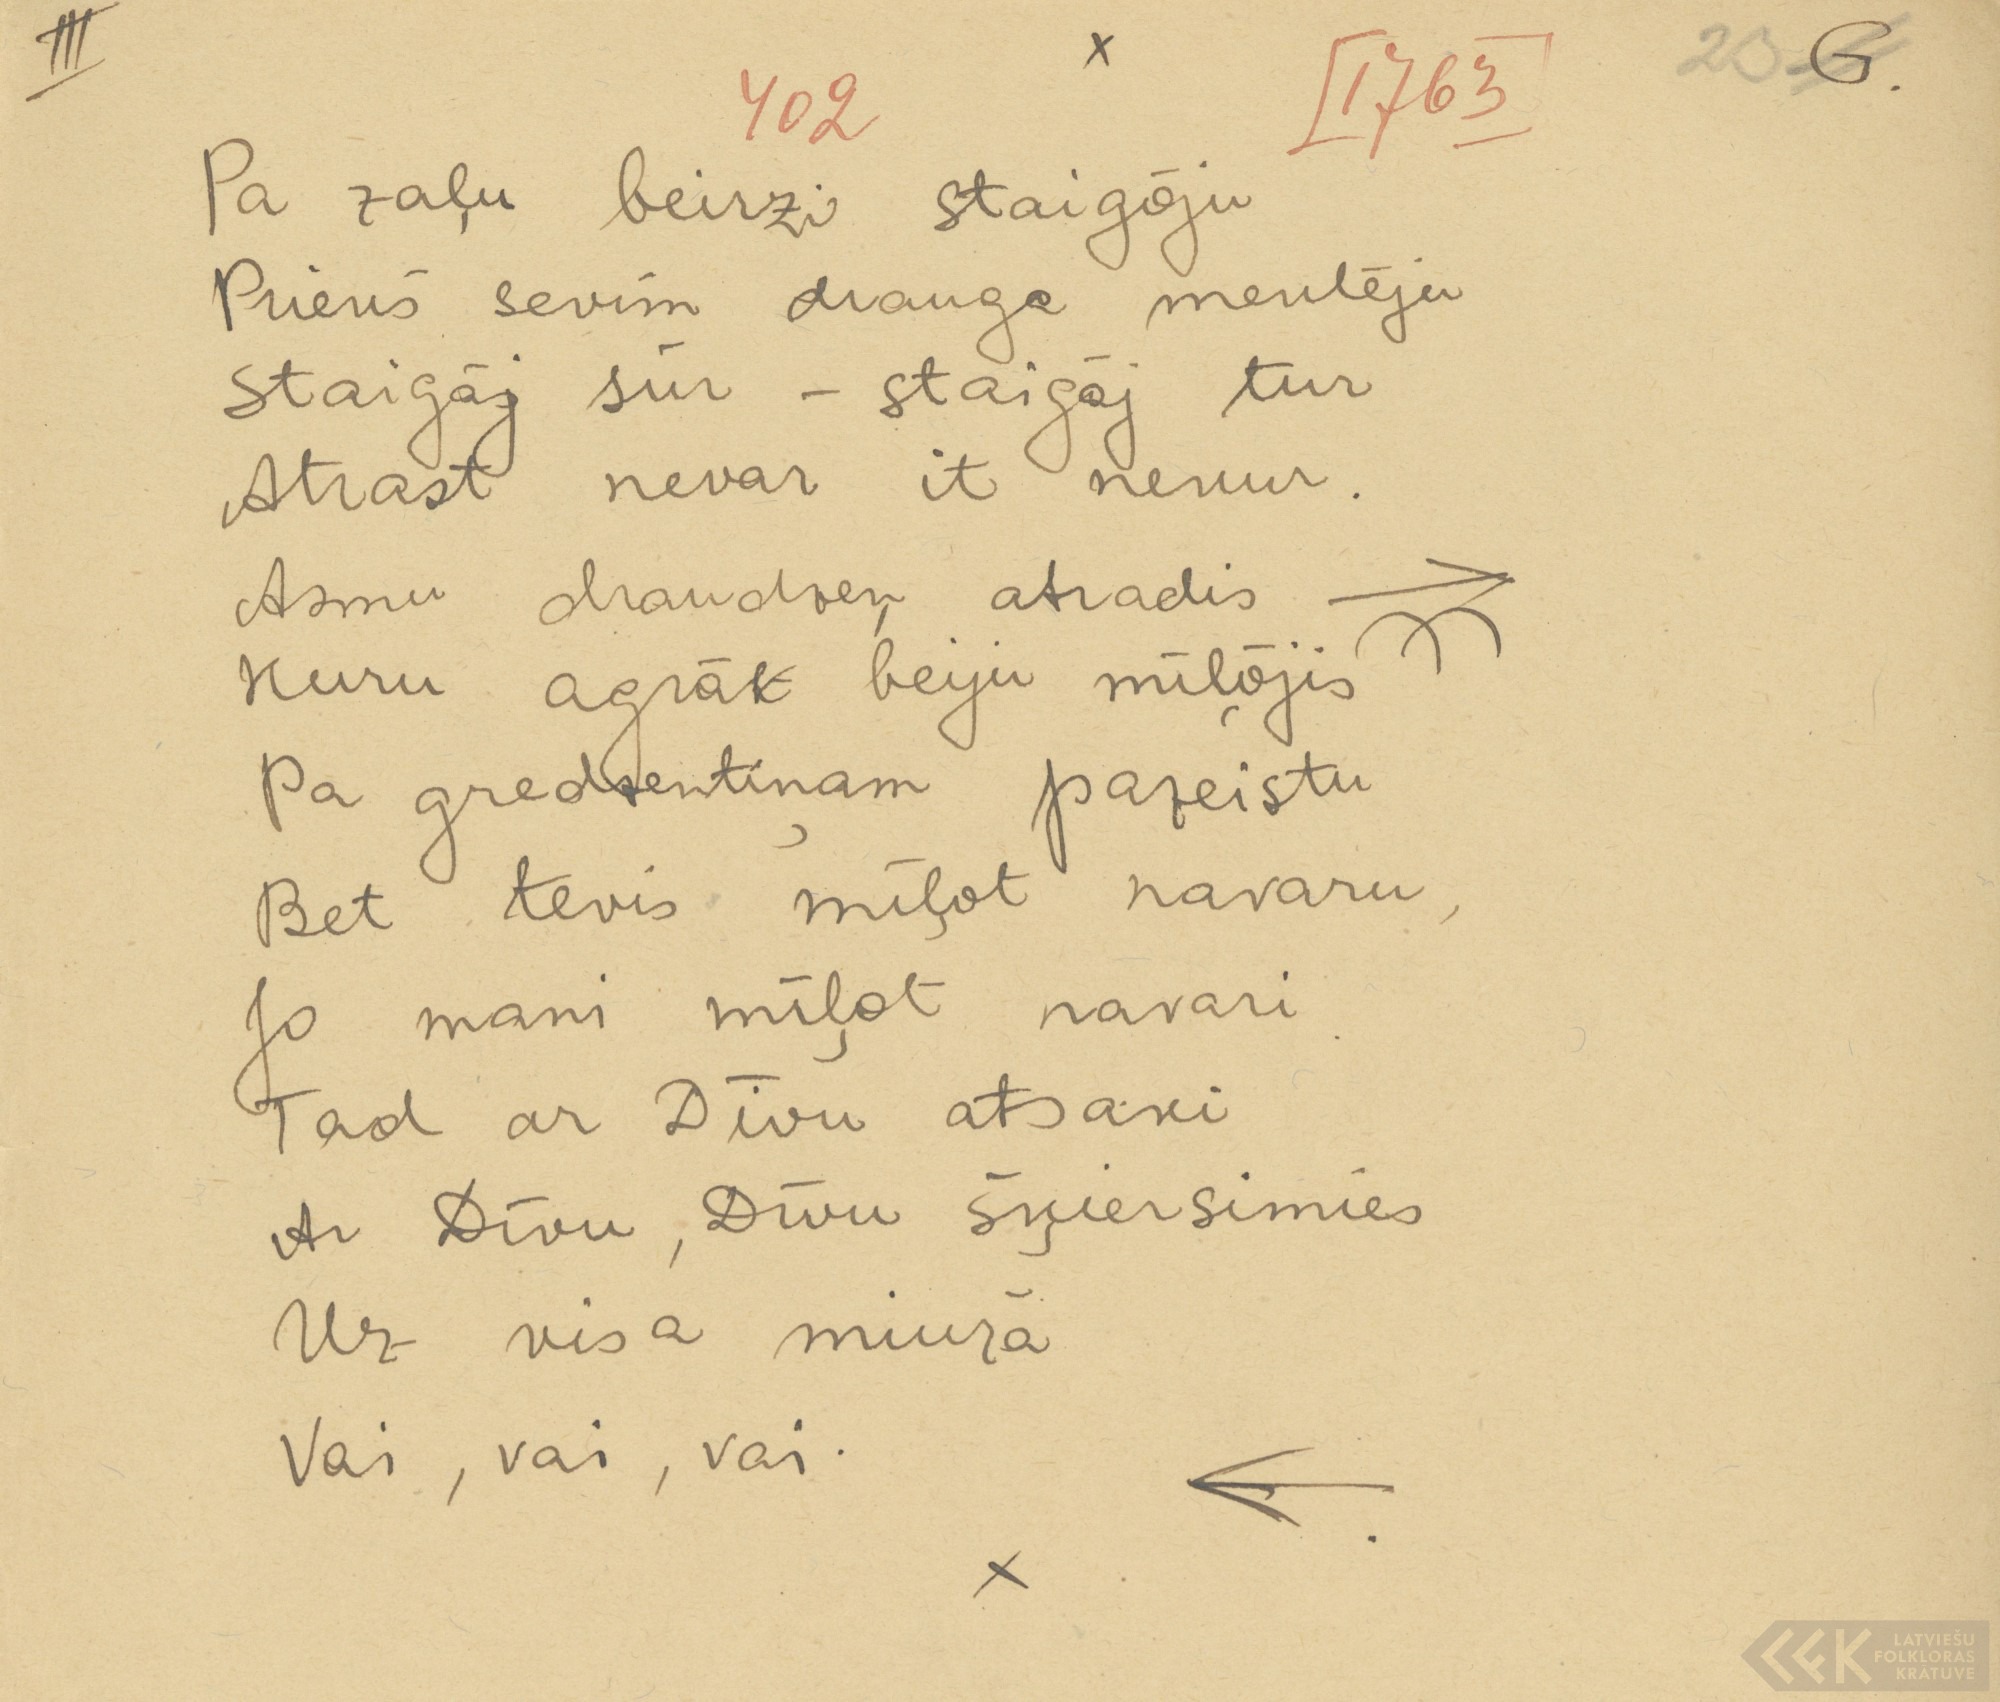 III x [1763] G.
402
Pa zaļu beirzi staigōju
Priekš sevim drauga meklēju
Staigāj šur – staigāj tur
Atrast nevar it nekur.
Asmu draudzeņ atradis
Kuru agrāk beiju mīļōjis
Pa gredzentiņam pazeistu
Bet tevis mīļot navaru,
Jo mani mīļot navari
Tad ar Dīvu atsaki
Ar Dīvu, Dīvu šķiersimies
Uz visa miužā
Vai, vai, vai.
x
LATVIEŠU
FOLKLORAS
KRĀTUVE